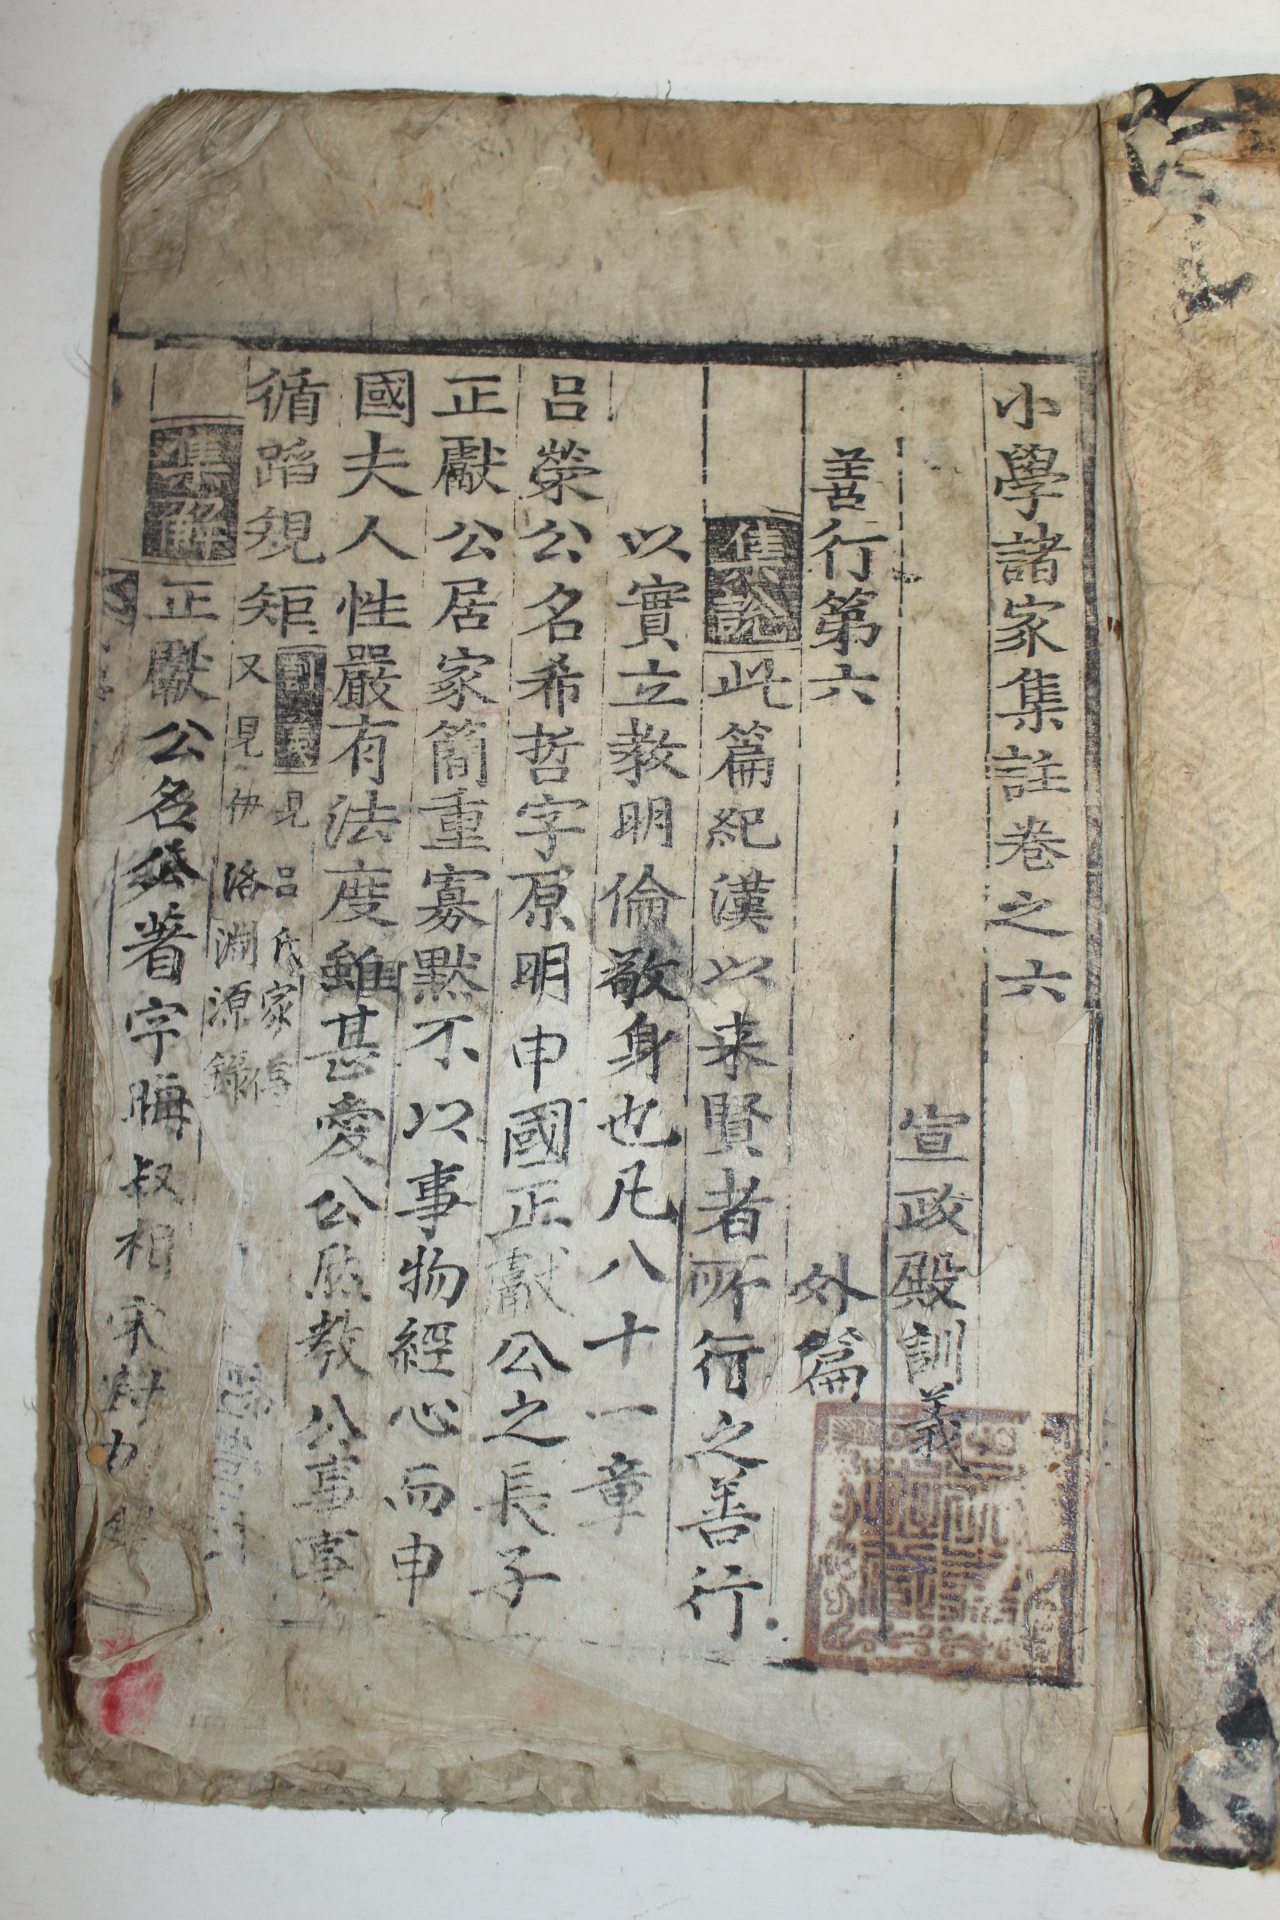 小學諸家集註卷之六
宣政殿訓義
善行第六
外篇
集說此篇紀漢以来賢者所行之善行
以實立教明倫敬身也凡八十一章
呂滎公名希哲字原明申國正獻公之長子
正獻公居家簡重寡黙不以事物經心而申
國夫人性嚴有法度雖甚愛公然教公事事
循蹈規矩
訓義見呂氏家傳
又見伊洛淵源錄
集解正獻公名公著字晦叔相宋